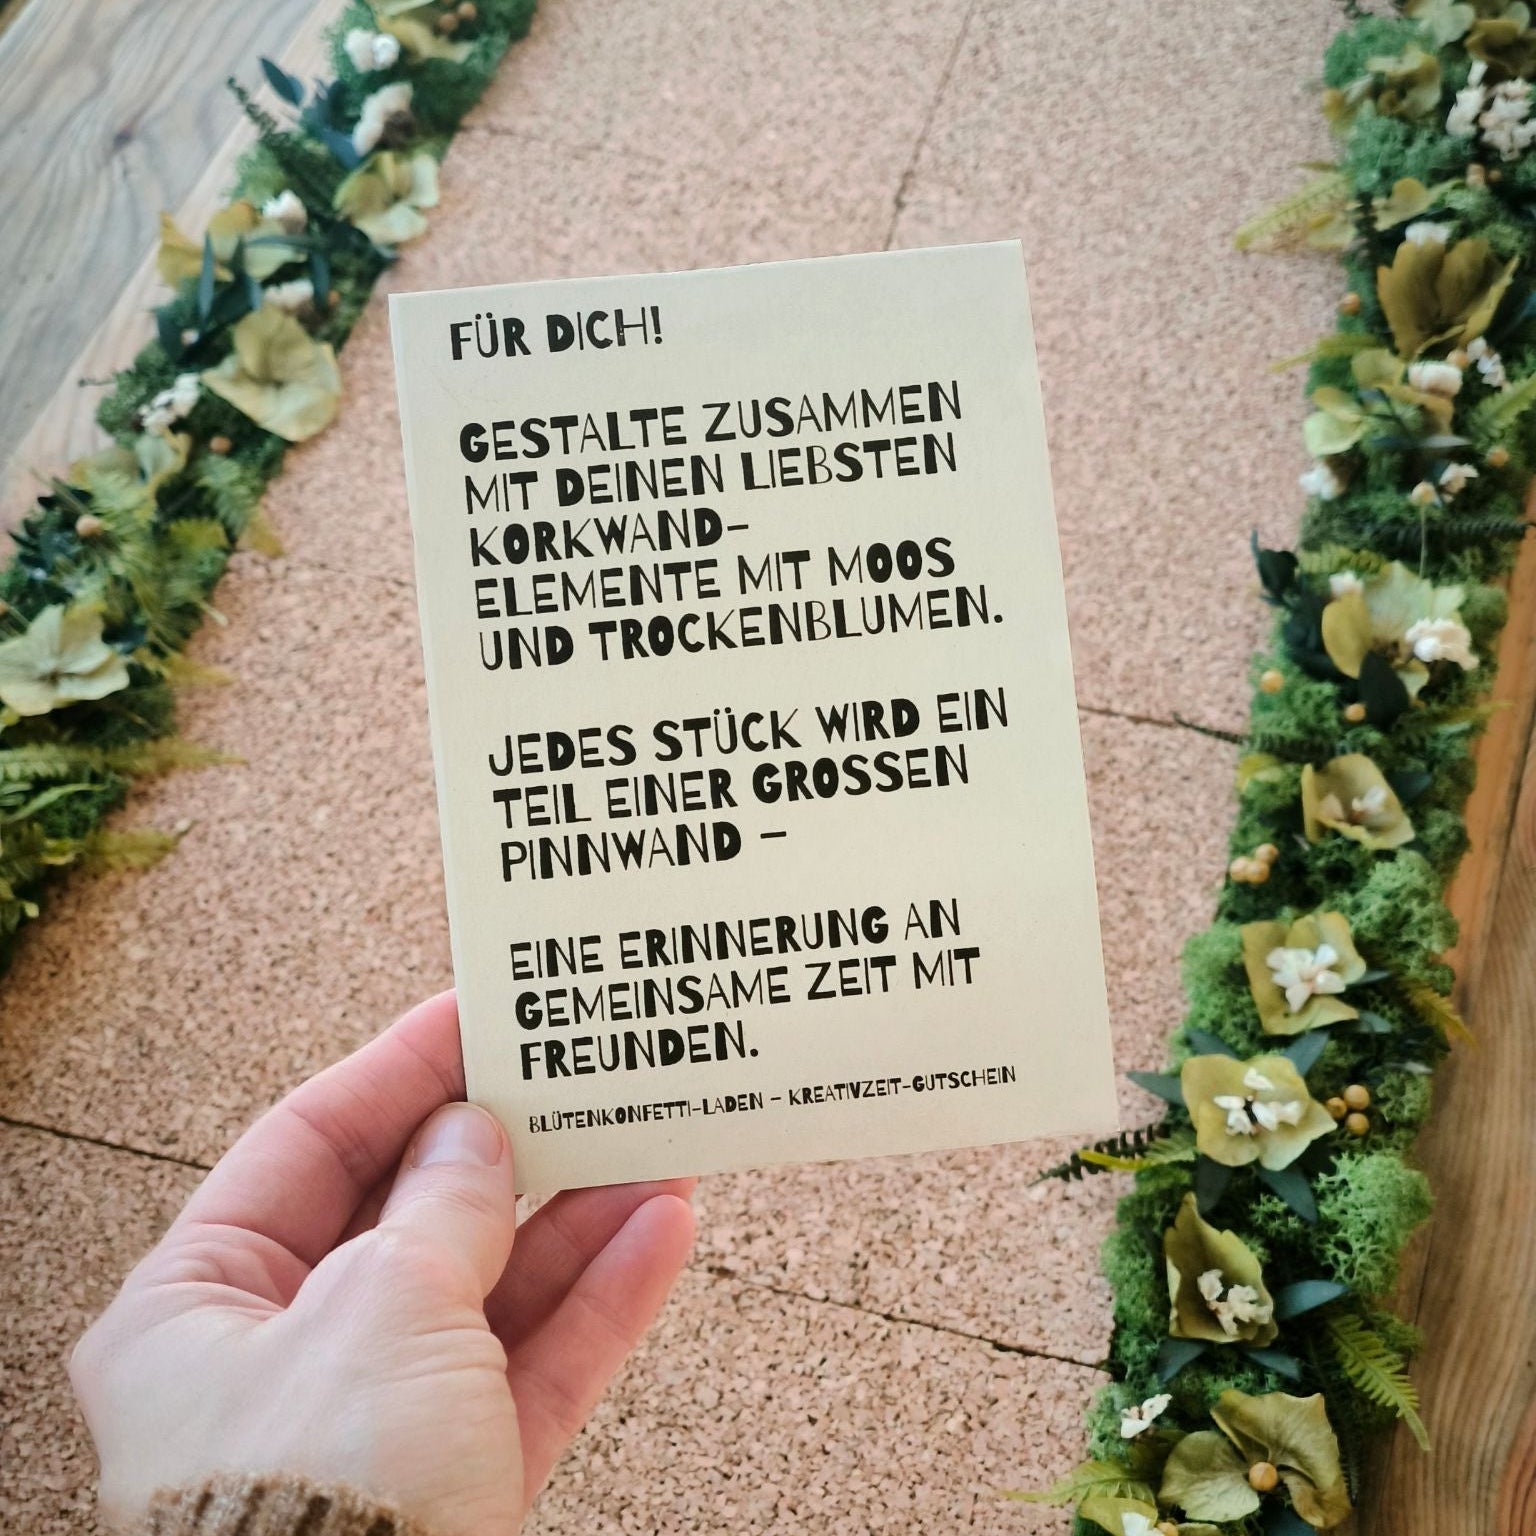 FÜR DICH!
GESTALTE ZUSAMMEN
MIT DEINEN LIEBSTEN
KORKWAND-
ELEMENTE MIT MOOS
UND TROCKENBLUMEN.
JEDES STÜCK WIRD EIN
TEIL EINER GROSSEN
PINNWAND –
EINE ERINNERUNG AN
GEMEINSAME ZEIT MIT
FREUNDEN.
BLÜTENKONFETTI-LADEN – KREATIVZEIT-GUTSCHEIN